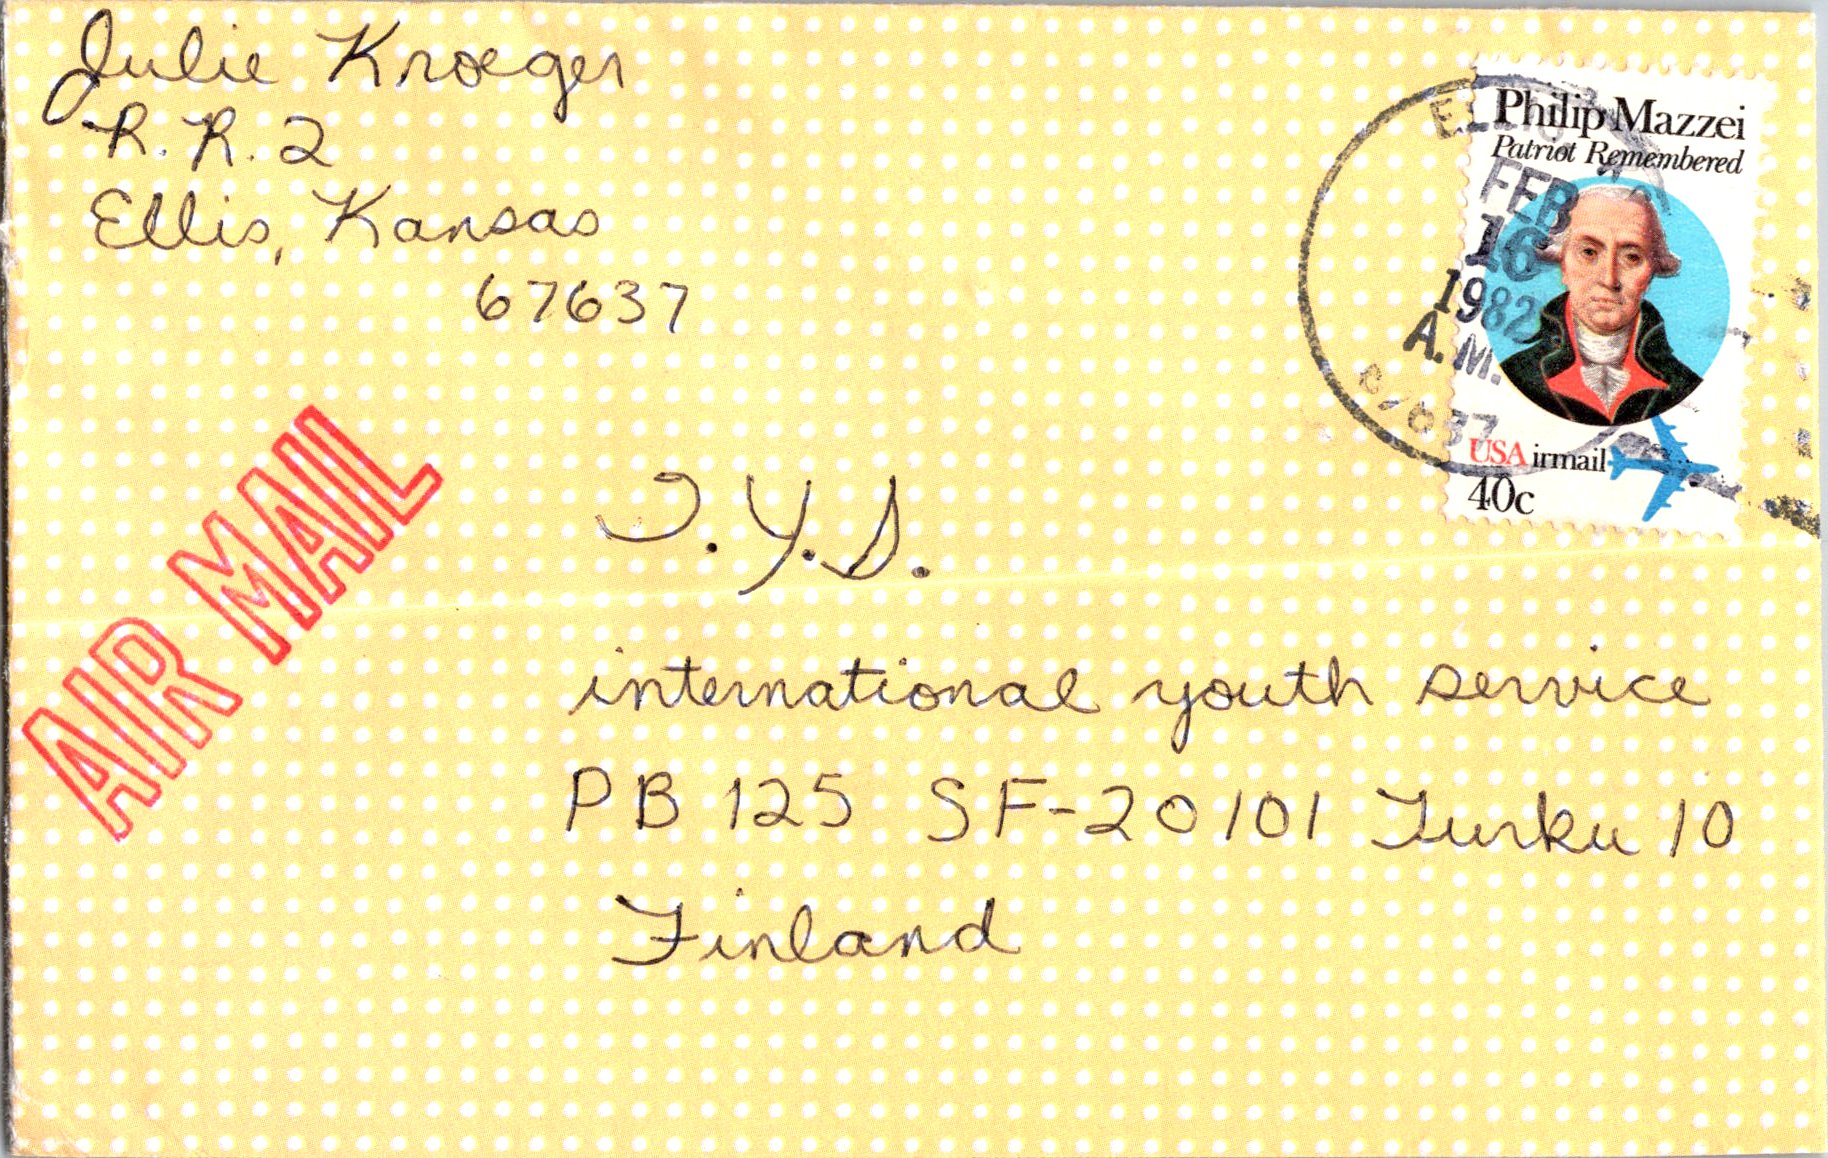 Julie Kroeger
R.R. 2
Ellis, Kansas
67637
Philip Mazzei
Patriot Remembered
FEB
16
1982
A.M.
67637
USAirmail
40c
AIR MAIL
I.Y.S.
international youth service
PB 125 SF-20101 Turku 10
Finland